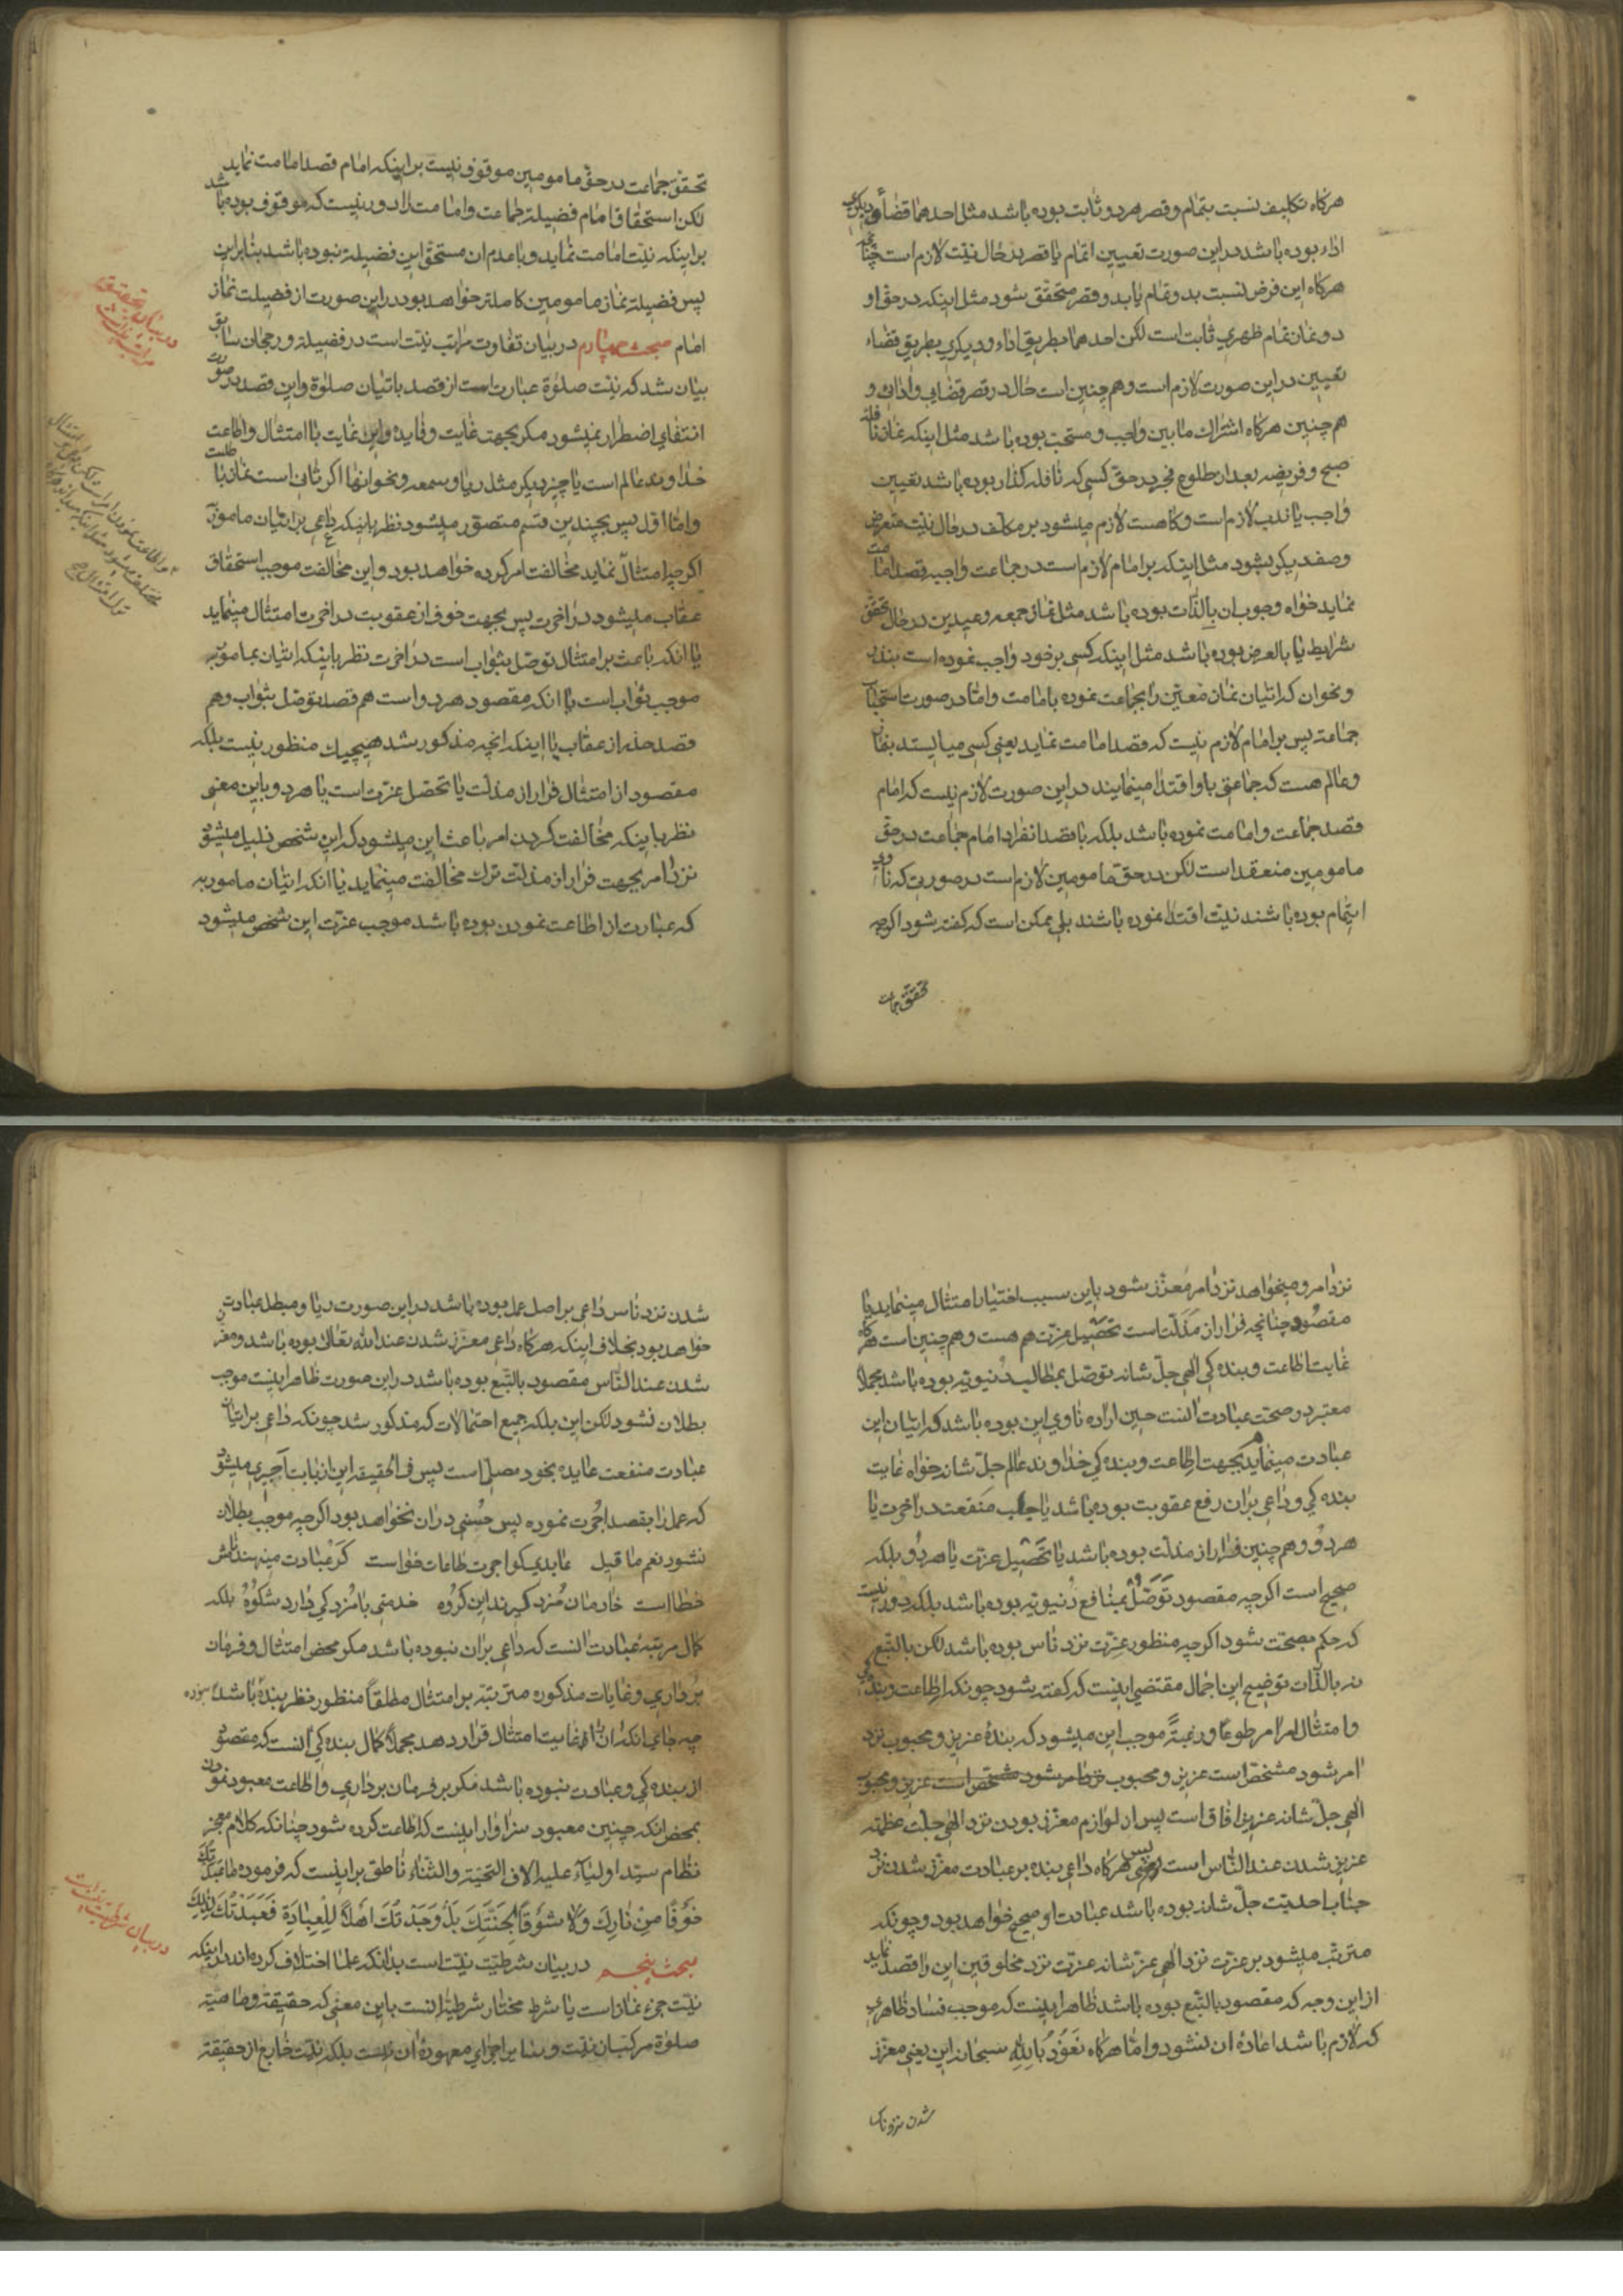 هرکاه تکلیف نسبت بتمام و قصر هر دو ثابت بوده باشد مثل احدهما قضاءً و دیکری
اداء بوده باشد در این صورت تعیین اتمام یا قصر در حال نیّت لازم است چنانچه
هرکاه این فرض نسبت بدو تمام یا بدو قصر متحقق شود مثل اینکه در حق او
دو نماز تمام ظهری ثابت است لکن احدهما بطریق اداء و دیکری بطریق قضاء
تعیین در این صورت لازم است و هم چنین است حال در قصر قضایی و ادائی و
هم چنین هرکاه اشتراک مابین واجب و مستحب بوده باشد مثل اینکه نماز نافله
صبح و فریضه بعد از طلوع فجر در حقّ کسی که نافله کذار بوده باشد تعیین
واجب یا ندب لازم است و کاهست لازم میشود بر مکلّف در حال نیّت متعرض
وصف دیکر بشود مثل اینکه بر امام لازم است در جماعت واجبه قصد امامت
نماید خواه وجوب ان بالذات بوده باشد مثل نماز جمعه و عیدین در حال تحقق
شرایط یا بالعرض بوده باشد مثل اینکه کسی بر خود واجب نموده است بنذر
و نحو ان که اتیان نماز معیّن را بجماعت نموده بامامت و امّا در صورت استحباب
جماعة پس بر امام لازم نیست که قصد امامت نماید یعنی کسی میایستد بنماز
و عالم هست که جماعتی باو اقتدا مینمایند در این صورت لازم نیست که امام
قصد جماعت و امامت نموده باشد بلکه با قصد انفراد امام جماعت در حقّ
مامومین منعقد است لکن در حقّ مامومین لازم است در صورتی که ناوی
ایتمام بوده باشند نیّت اقتدا نموده باشند بلی ممکن است که کفته شود اکرچه
تحقق جماعت
تحقق جماعت در حقّ مامومین موقوف نیست بر اینکه امام قصد امامت نماید
لکن استحقاق امام فضیلة جماعت و امامت را دور نیست که موقوف بوده باشد
بر اینکه نیّت امامت نماید و با عدم ان مستحق این فضیلة نبوده باشد بنابراین
پس فضیلة نماز مامومین کاملتر خواهد بود در این صورت از فضیلت نماز
امام مبحث چهارم در بیان تفاوت مراتب نیّت است در فضیلة و رجحان سابق
بیان شد که نیّت صلوة عبارت است از قصد باتیان صلوة و این قصد در صورت
انتفای اضطرار نمیشود مکر بجهت غایت و فایده و این غایت یا امتثال و اطاعت
خداوند عالم است یا چیز دیکر مثل ریا و سمعه و نحو انها اکر ثانی است نماز باطلست
و امّا اوّل پس بچندین قسم متصوّر میشود نظر باینکه داعی بر اتیان مامور به
اکرچه امتثال نماید مخالفت امر کرده خواهد بود و این مخالفت موجب استحقاق
عقاب میشود در اخرت پس بجهت خوف از عقوبت در اخرت امتثال مینماید
یا انکه باعث بر امتثال توصّل بثواب است در اخرت نظر باینکه اتیان بمامور به
موجب ثواب است یا انکه مقصود هر دو است هم قصد توصّل بثواب و هم
قصد حذر از عقاب یا اینکه انچه مذکور شد هیچیک منظور نیست بلکه
مقصود از امتثال فرار از مذلّت یا تحصّل عزت است یا هر دو باین معنی
نظر باینکه مخالفت کردن امر باعث این میشود که این شخص ذلیل میشود
نزد امر بجهت فرار از مذلّت ترک مخالفت مینماید یا انکه اتیان مامور به
که عبارت از اطاعت نمودن بوده باشد موجب عزّت این شخص میشود
در بیان تحقیق
مراتب نیّت است
نزد امر و میخواهد نزد امر معزّز شود باین سبب اختیار امتثال مینماید یا
مقصود چنانچه فرار از مذلّت است تحصیل عزّت هم هست و هم چنین است هرکاه
غایت اطاعت و بنده کی الهی جلّ شانه توصّل بمطالب دنیویّه بوده باشد مجملا
معتبر در صحّت عبادت انست حین اراده ناوی این بوده باشد که اتیان این
عبادت مینماید بجهت اطاعت و بنده کی خداوند عالم جلّ شانه خواه غایت
بنده کی و داعی بران رفع عقوبت بوده باشد یا جلب منفعت در اخرت یا
هر دو و هم چنین فرار از مذلّت بوده باشد یا تحصیل عزت یا هر دو بلکه
صحیح است اکرچه مقصود توصّل بمنافع دنیویّه بوده باشد بلکه دور نیست
که حکم بصحّت شود اکرچه منظور عزّت نزد ناس بوده باشد لکن بالتّبع
نه بالذّات توضیح این اجمال مقتضی اینست که کفته شود چونکه اطاعت و بنده کی
و امتثال امر امر طوعًا و رغبةً موجب این میشود که بندهٔ عزیز و محبوب نزد
امر شود مشخّص است عزیز و محبوب نزد امر شود مشخص است عزیز و محبوب
الهی جلّ شانه عزیز افاق است پس از لوازم معزّز بودن نزد الهی جلّت عظمته
عزیز شدن عند النّاس است پس هرکاه داعی بنده بر عبادت معزّز شدن نزد
جناب احدیّت جلّ شانه بوده باشد عبادت او صحیح خواهد بود و چونکه
مترتّب میشود بر عزت نزد الهی عزّ شانه عزت نزد مخلوقین این را قصد نماید
از این وجه که مقصود بالتّبع بوده باشد ظاهر اینست که موجب فساد ظاهری
که لازم باشد اعادهٔ ان نشود و امّا هرکاه نعوذ بالله سبحانه این یعنی معزّز
شدن نزد ناس
شدن نزد ناس داعی بر اصل عمل بوده باشد در این صورت ریا و مبطل عبادت
خواهد بود بخلاف اینکه هرکاه داعی معزّز شدن عند الله تعالی بوده باشد و معزّز
شدن عند النّاس مقصود بالتّبع بوده باشد در این صورت ظاهر اینست موجب
بطلان نشود لکن این بلکه جمیع احتمالات که مذکور شد چونکه داعی بر اتیان
عبادت منفعت عایده بخود مصلّ است پس فی الحقیقه این از بابت اجیری میشود
که عمل را بقصد اجرت نموده پس حُسنی در ان نخواهد بود اکرچه موجب بطلان
نشود نعم ما قیل عابدی کو اجرت طاعات خواست کر عبادت مینهند نامش
خطا است خادمان مُزد کیرند این کروه خدمتی با مُزد کی دارد شکوه بلکه
کمال مرتبه عبادت انست که داعی بران نبوده باشد مکر محض امتثال و فرمان
برداری و غایات مذکوره مترتبّه بر امتثال مطلقاً منظور نظر بنده نبوده باشد
چه جای انکه ان را غایت امتثال قرار دهد مجملا کمال بنده کی انست که مقصود
از بنده کی و عبادت نبوده باشد مکر بر فرمان برداری و اطاعت معبود نمودن
بمحض انکه چنین معبود سزاوار اینست که اطاعت کرده شود چنانکه کلام معجز
نظام سیّد اولیاء علیه الاف التحیّة والثّناء ناطق بر اینست که فرموده ما عَبَدْتُکَ
خَوفًا مِنْ نارِكَ وَلا شَوْقًا لِجَنَّتِكَ بَلْ وَجَدْتُكَ اَهْلًا لِلْعِبادَةِ فَعَبَدْتُكَ لِذٰلِكَ
مبحث پنجم در بیان شرطیّت نیّت است بدانکه علما اختلاف کرده اند در اینکه
نیّت جزء نماز است یا شرط مختار شرطیّة انست باین معنی که حقیقة و ماهیّة
صلوة مرکب از نیّت و سایر اجزای معهودهٔ ان نیست بلکه نیّت خارج از حقیقة
در بیان شرطیّت نیّت است